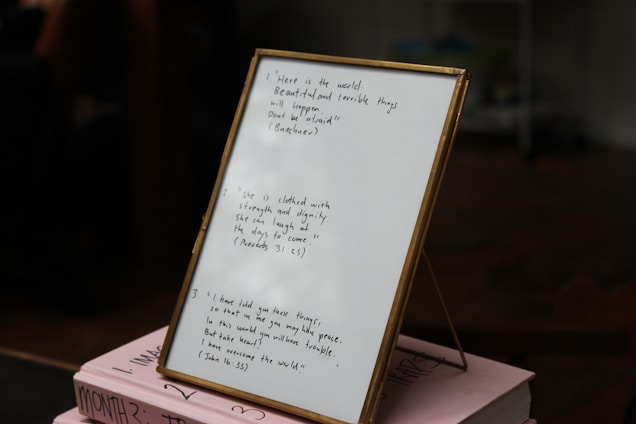 1. "Here is the world.
Beautiful and terrible things
will happen
Dont be afraid"
(Buechner)
2. "She is clothed with
strength and dignity.
She can laugh at
the days to come."
(Proverbs 31:25)
3 "I have told you these things,
so that in me you may have peace.
In this world you will have trouble.
But take heart!
I have overcome the world".
(John 16:33)
1.
2
3
MONTH 3: